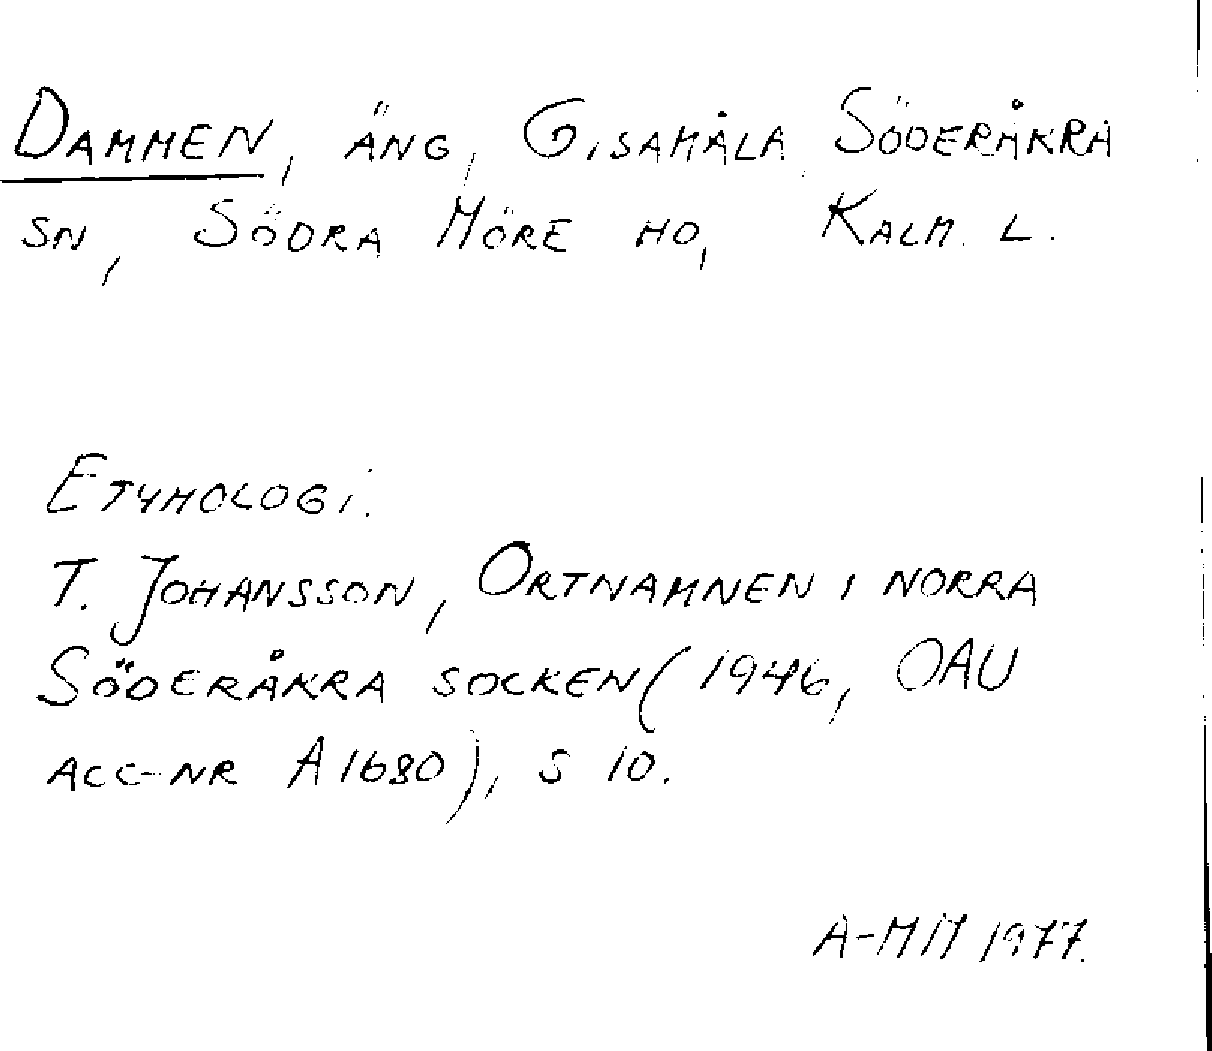 DAMMEN, ÄNG, GISAMÅLA, SÖDERÅKRA
SN, SÖDRA MÖRE HD, KALM. L.
ETYMOLOGI.
T. JOHANSSON, ORTNAMNEN I NORRA
SÖDERÅKRA SOCKEN (1946, OAU
ACC-NR A 1680), S 10.
A-MM 1977.